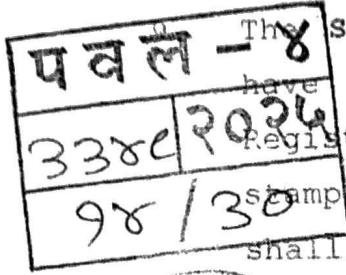 पवल - ४
३३४९ २०२५
१४ / ३०
The s
have
Regist
stamp
shall